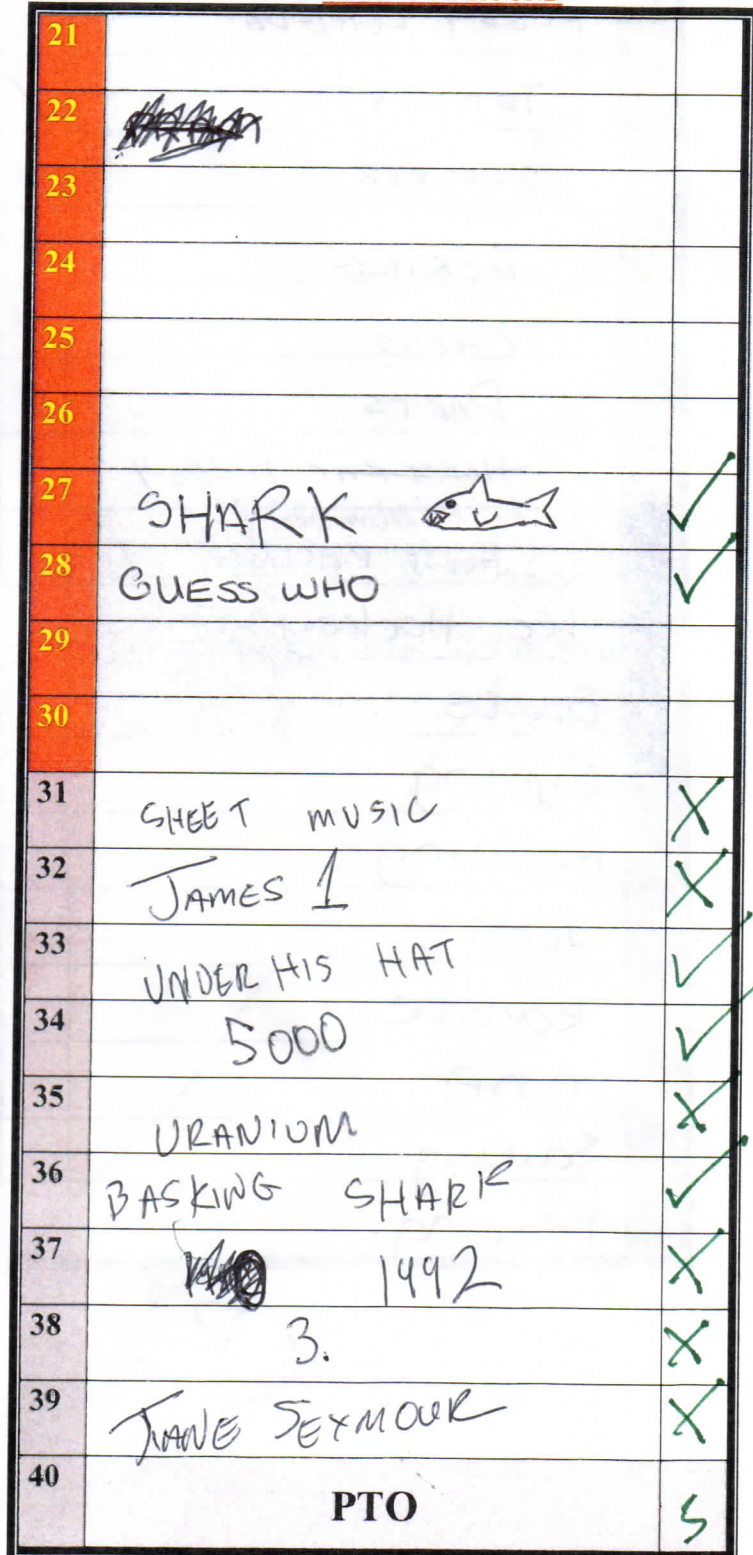 21
22
23
24
25
26
27 SHARK
28 GUESS WHO
29
30
31 SHEET MUSIC
32 JAMES 1
33 UNDER HIS HAT
34 5000
35 URANIUM
36 BASKING SHARK
37 1992
38 3.
39 JANE SEYMOUR
40 PTO 5